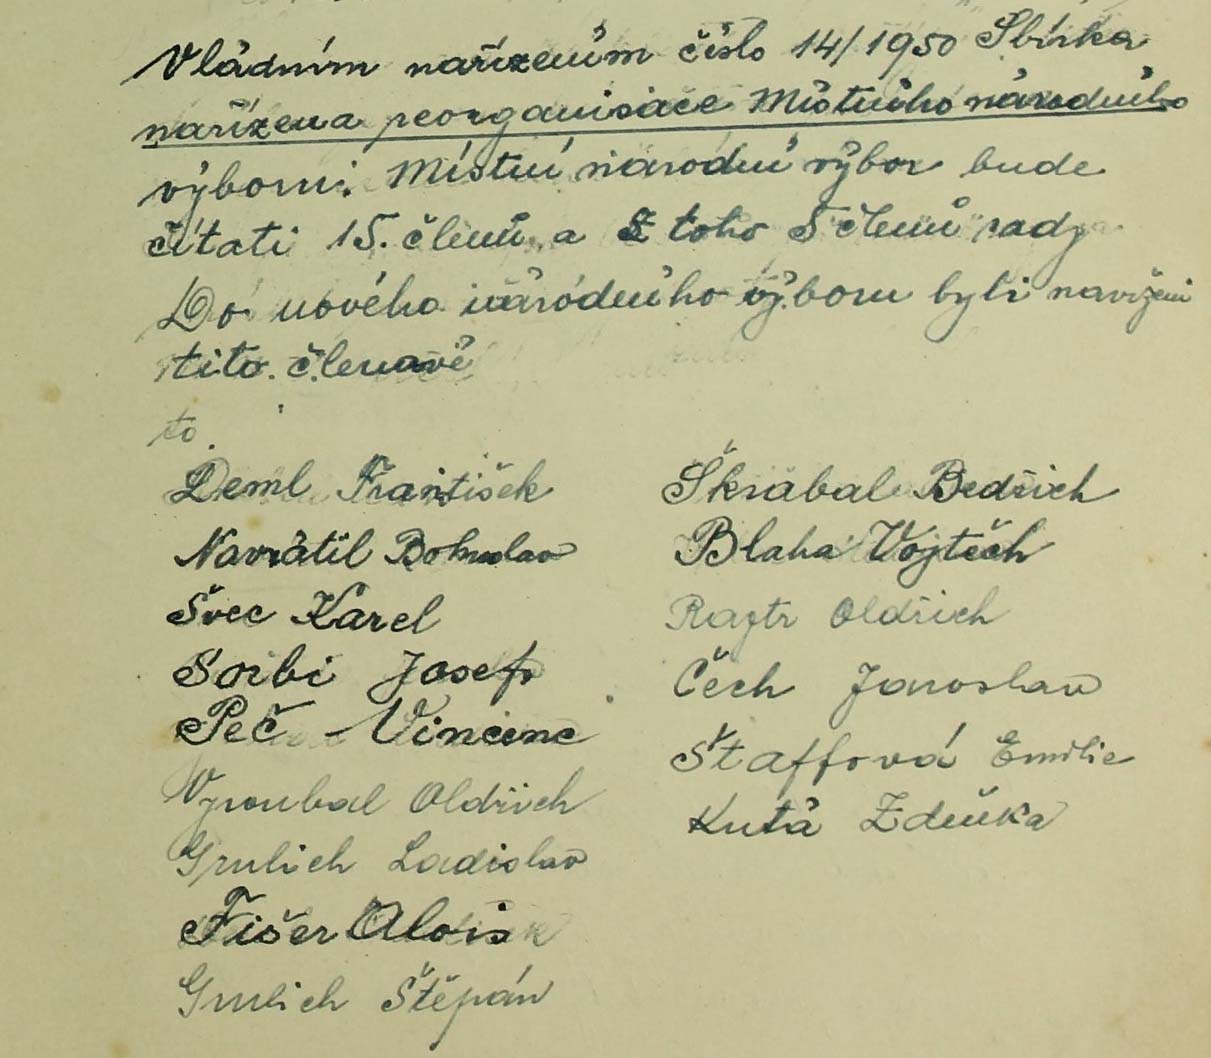 Vládním nařízením číslo 14/1950 Sbírka
nařízena reorganisace Místního národního
výboru. Místní národní výbor bude
čítati 15. členů a z toho 5 členů rady
Do nového národního výboru byli navrženi
tito. členové
to.
Deml František
Navrátil Bohuslav
Švec Karel
Soibi Josef
Peč - Vincenc
Vyroubal Oldřich
Grulich Ladislav
Fišer Alois
Grulich Štěpán
Škrabal Bedřich
Blaha Vojtěch
Rajtr Oldřich
Čech Jaroslav
Štaffová Emilie
Kutá Zdeňka